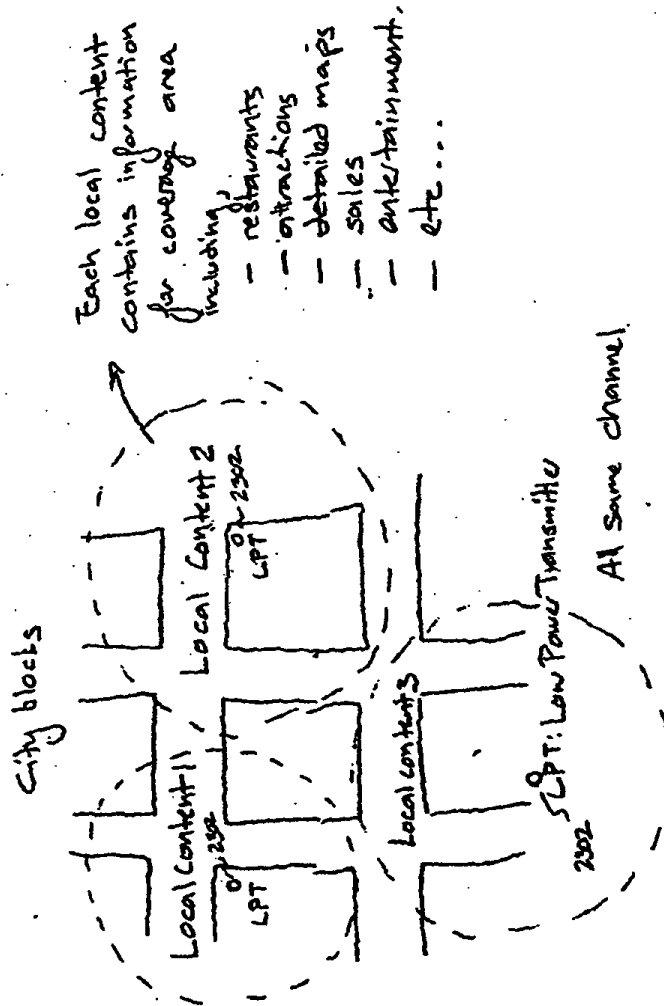 City blocks
Local Content 1
2302
LPT
Local Content 2
2302
LPT
Local content 3
LPT: Low Power Transmitter
2302
All same channel
Each local content
contains information
for coverage area
including,
- restaurants
- attractions
- detailed maps
- sales
- entertainment.
- etc...